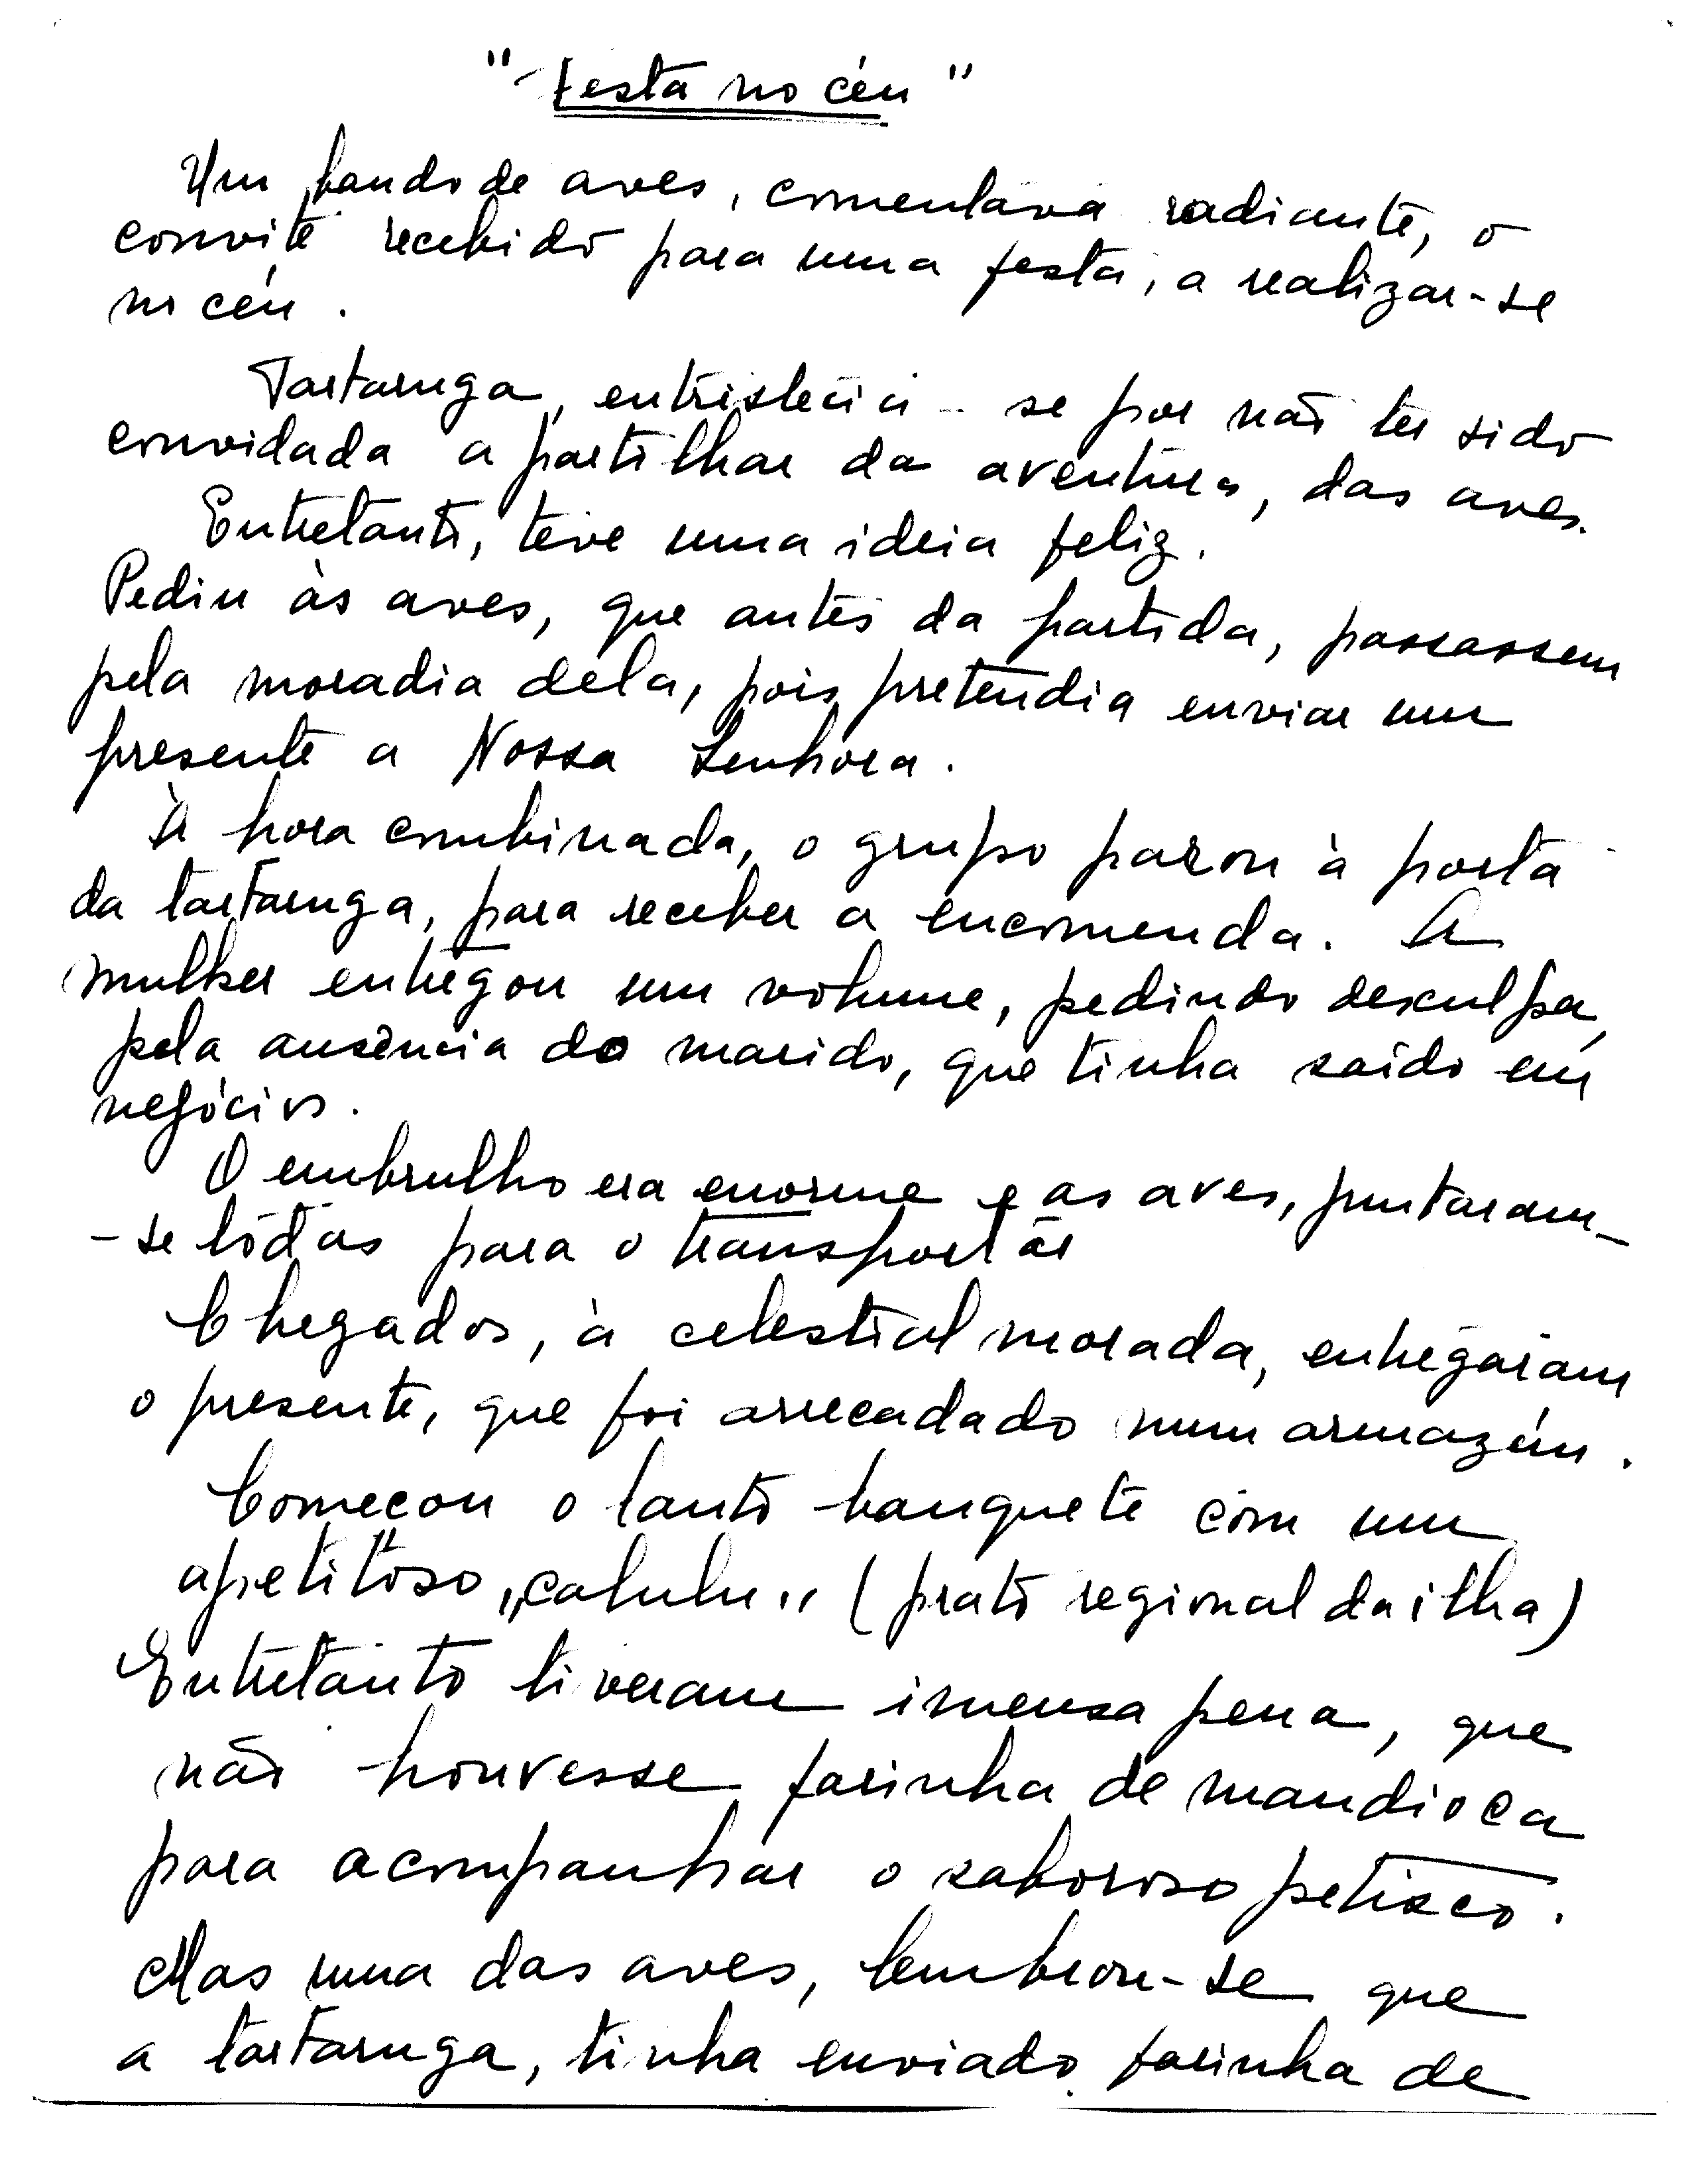 "Festa no céu"
Um bando de aves, comentava radiante, o
convite recebido para uma festa, a realizar-se
no céu.
Tartaruga, entristecia-se por não ter sido
convidada a partilhar da aventura, das aves.
Entretanto, teve uma ideia feliz.
Pediu às aves, que antes da partida, passassem
pela moradia dela, pois pretendia enviar um
presente a Nossa Senhora.
À hora combinada, o grupo parou à porta
da tartaruga, para receber a encomenda. A
mulher entregou um volume, pedindo desculpa,
pela ausência do marido, que tinha saído em
negócios.
O embrulho era enorme e as aves, juntaram-
-se tôdas para o transportar
Chegados, à celestial morada, entregaram
o presente, que foi arrecadado num armazém.
Começou o lauto banquete com um
apetitoso "calulu" (prato regional da ilha)
Entretanto tiveram imensa pena, que
não houvesse farinha de mandioca
para acompanhar o saboroso petisco.
Mas uma das aves, lembrou-se que
a tartaruga, tinha enviado farinha de